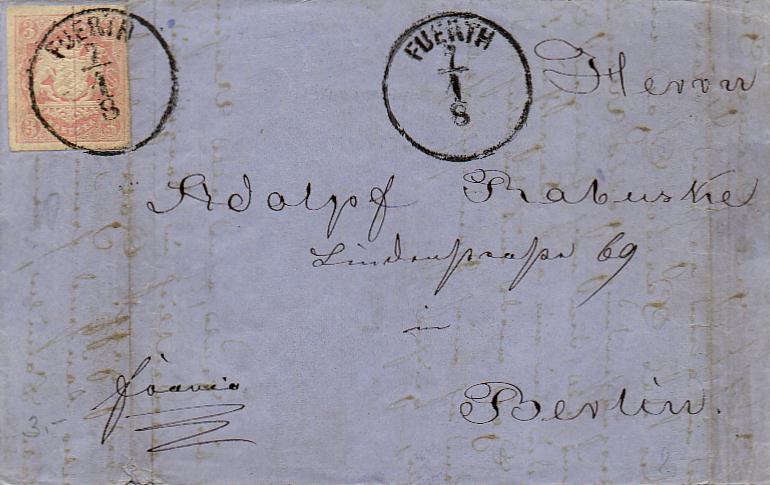 3
FUERTH
7/1
8
3
FUERTH
7/1
8
Herrn
Adolpf Rabuske
Lindenstraße 69
in
Berlin.
franco
3.-